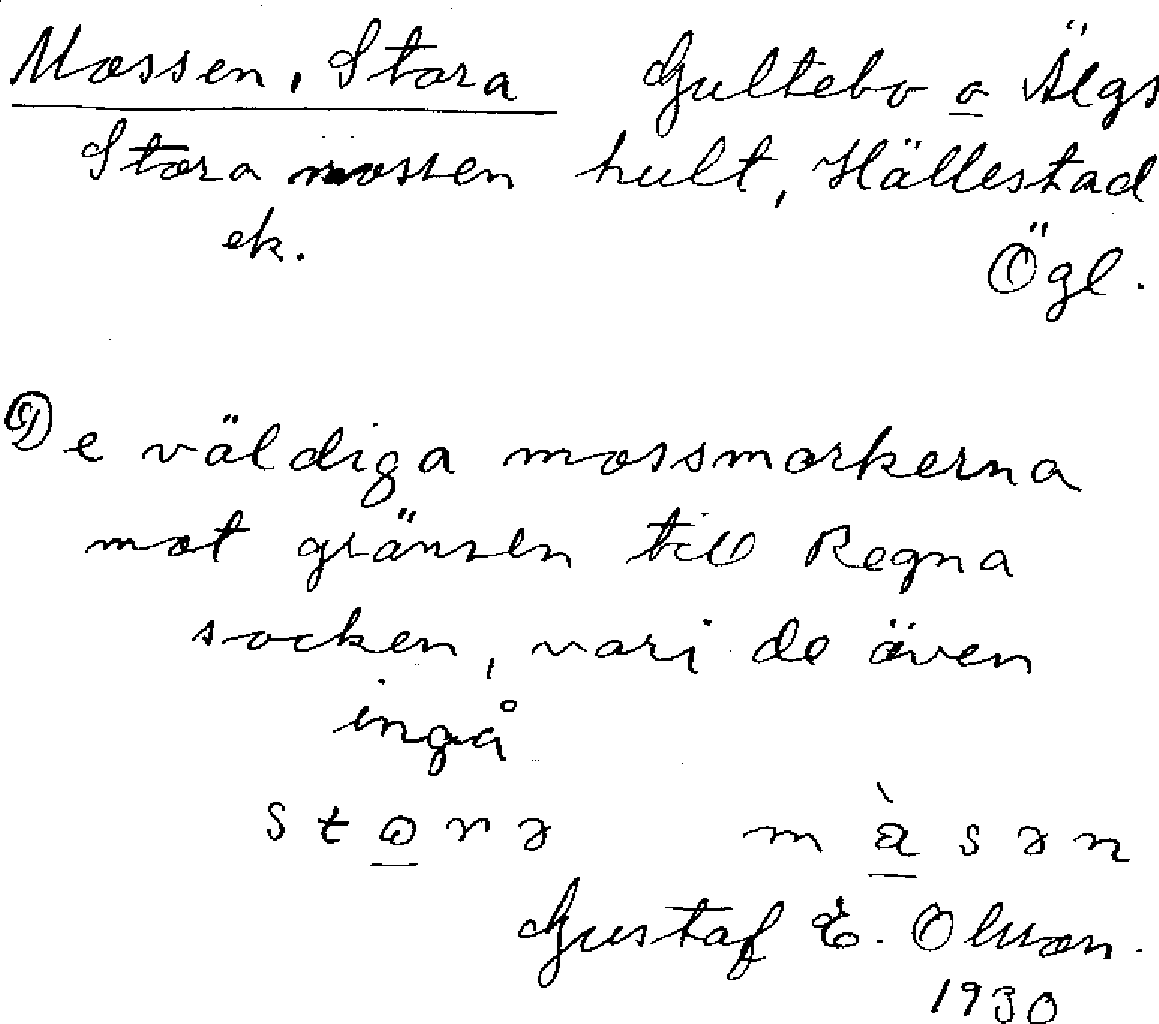 Mossen, Stora Gultebo o Älgs
Stora mossen hult, Hällestad
ek. Ögl.
De väldiga mossmarkerna
mot gränsen till Regna
socken, vari de även
ingå
stọrə màsən
Gustaf E. Olsson.
1930